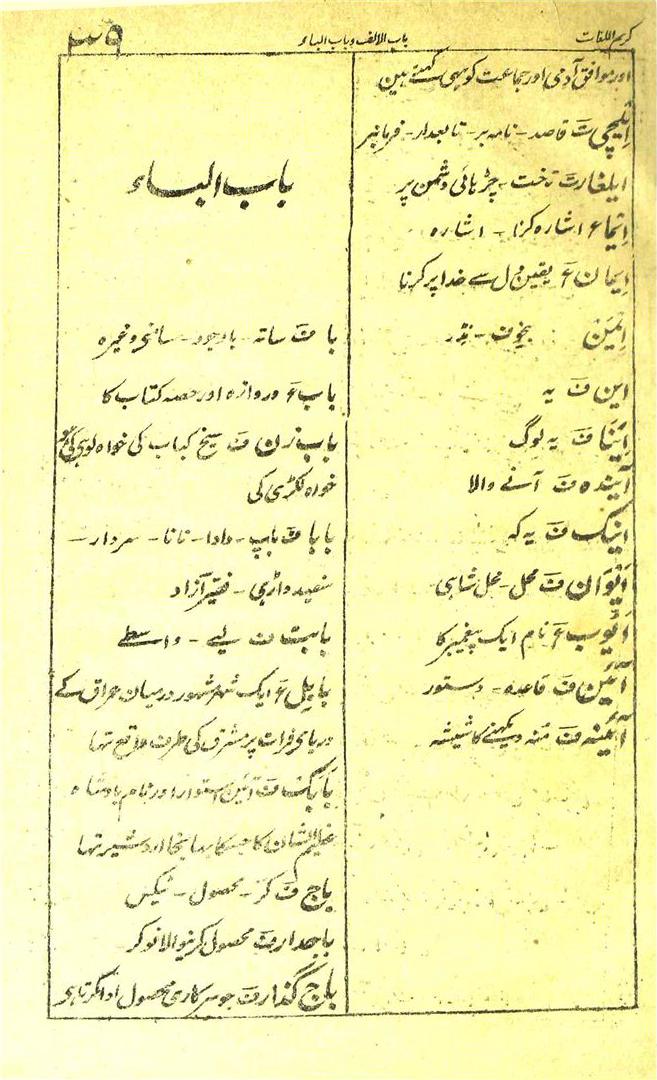 کریم اللغات
باب الالف و باب الباء
۳۹
اور موافق آدمی اور جماعت کو بہی کہتے ہین
اِیلچی ت قاصد - نامہ بر - تابعدار - فرمانبر
ایلغار ت تاخت - چڑہائی دشمن پر
اِیما ع اشارہ کرنا - اشارہ
اِیمان ع یقین دل سے خدا پر کرنا
اِیمَن بیخوف - نڈر
این ف یہ
اِینَا ف یہ لوگ
آیندہ ف آنے والا
اینک ف یہ کہ
اَیْوَان ف محل - محل شاہی
اَیُّوب ع نام ایک پیغمبر کا
آئین ف قاعدہ - دستور
آئینہ ف مُنہ دیکہنے کا شیشہ
باب الباء
با ف ساتہ - باوجود - سالن وغیرہ
باب ع دروازہ اور حصہ کتاب کا
باب زن ف سیخ کباب کی خواہ لوہی کی ہو
خواہ لکڑی کی
بابا ف باپ - دادا - نانا - سردار -
سفید داڑہی - فقیر آزاد
بابت ف لیے - واسطے
بابِل ع ایک شہر مشہور درمیان عراق کے
دریای فرات پر مشرق کی طرف واقع تہا
بَابَک ف آئین استوار اور نام بادشاہ
عظیم الشان کا جسکا بہانجا اردشیر تہا
باج ف کر - محصول - ٹیکس
باجدار ف محصول کرنیوالا نوکر
باج گذار ف جو سرکاری محصول ادا کرتا ہو